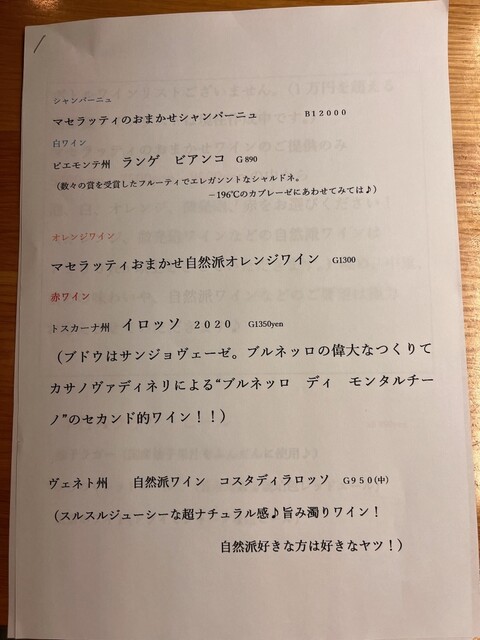 シャンパーニュ
マセラッティのおまかせシャンパーニュ B12000
白ワイン
ピエモンテ州 ランゲ ビアンコ G890
(数々の賞を受賞したフルーティでエレガンントなシャルドネ。
－196℃のカプレーゼにあわせてみては♪)
オレンジワイン
マセラッティおまかせ自然派オレンジワイン G1300
赤ワイン
トスカーナ州 イロッソ 2020 G1350yen
(ブドウはサンジョヴェーゼ。ブルネッロの偉大なつくりて
カサノヴァディネリによる“ブルネッロ ディ モンタルチー
ノ”のセカンド的ワイン！！)
ヴェネト州 自然派ワイン コスタディラロッソ G950(中)
(スルスルジューシーな超ナチュラル感♪旨み濁りワイン！
自然派好きな方は好きなヤツ！)